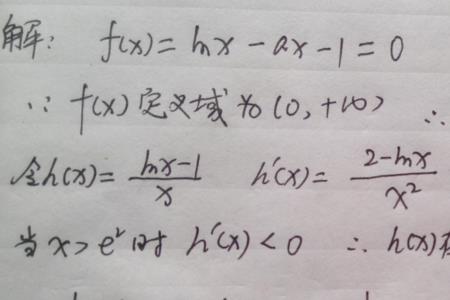 解: f(x) = lnx - ax - 1 = 0
∵ f(x) 定义域为 (0, +∞) ∴
令h(x) = (lnx-1)/x h'(x) = (2-lnx)/x²
当 x > e² 时 h'(x) < 0 ∴ h(x)在